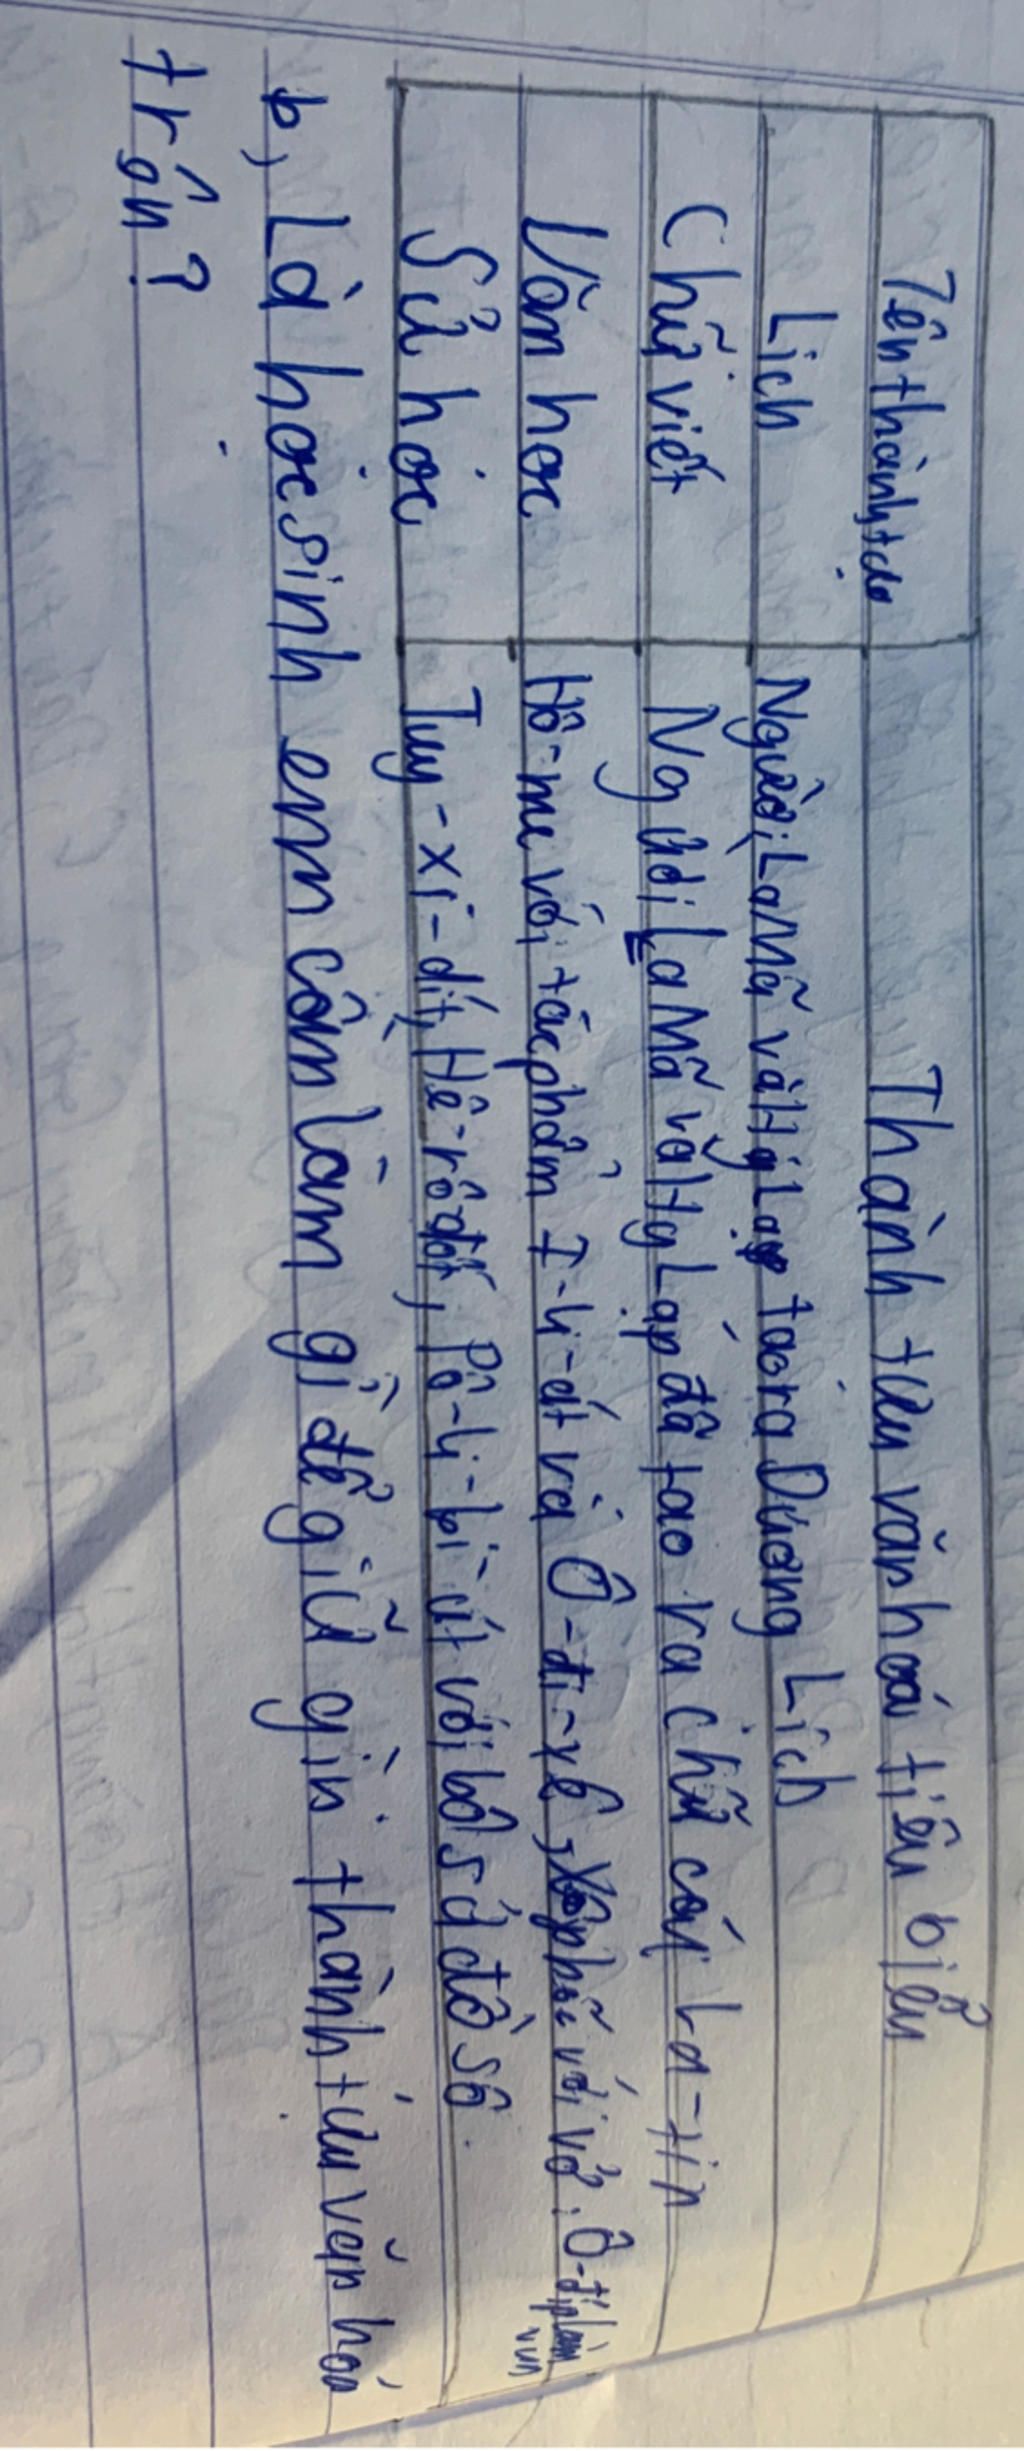 Tên thành tựu Thành tựu văn hoá tiêu biểu
Lịch Người La Mã và Hy Lạp tạo ra Dương Lịch
Chữ viết Người La Mã và Hy Lạp đã tạo ra chữ cái La-tin
Văn học Hô-me với tác phẩm I-li-át và Ô-đi-xê, với vở Ô-đíp làm vua
Sử học Tuy-xi-dít, Hê-rô-đốt, Pô-li-bi-út với bộ sử đồ sộ.
b, Là học sinh em cần làm gì để giữ gìn thành tựu văn hoá
trên?